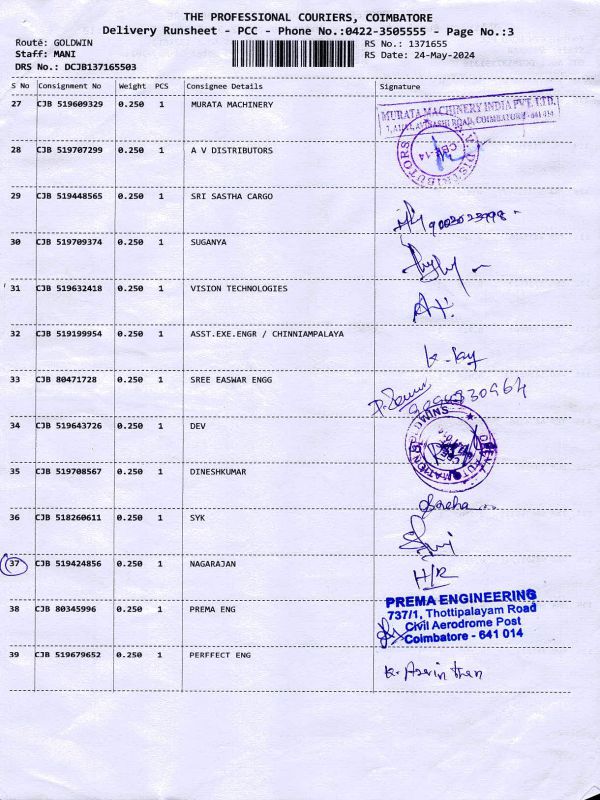 THE PROFESSIONAL COURIERS, COIMBATORE
Delivery Runsheet - PCC - Phone No.:0422-3505555 - Page No.:3
Route: GOLDWIN
RS No.: 1371655
Staff: MANI
RS Date: 24-May-2024
DRS No.: DCJB137165503
S No Consignment No Weight PCS Consignee Details Signature
27 CJB 519609329 0.250 1 MURATA MACHINERY
MURATA MACHINERY INDIA PVT. LTD.
AVINASHI ROAD, COIMBATORE - 641 014
28 CJB 519707299 0.250 1 A V DISTRIBUTORS
DISTRIBUTORS
CBE-14
29 CJB 519448565 0.250 1 SRI SASTHA CARGO
9003023998
30 CJB 519709374 0.250 1 SUGANYA
31 CJB 519632418 0.250 1 VISION TECHNOLOGIES
32 CJB 519199954 0.250 1 ASST.EXE.ENGR / CHINNIAMPALAYA
33 CJB 80471728 0.250 1 SREE EASWAR ENGG
34 CJB 519643726 0.250 1 DEV
35 CJB 519708567 0.250 1 DINESHKUMAR
36 CJB 518260611 0.250 1 SYK
37 CJB 519424856 0.250 1 NAGARAJAN
H/R
38 CJB 80345996 0.250 1 PREMA ENG
PREMA ENGINEERING
737/1, Thottipalayam Road
Civil Aerodrome Post
Coimbatore - 641 014
39 CJB 519679652 0.250 1 PERFFECT ENG